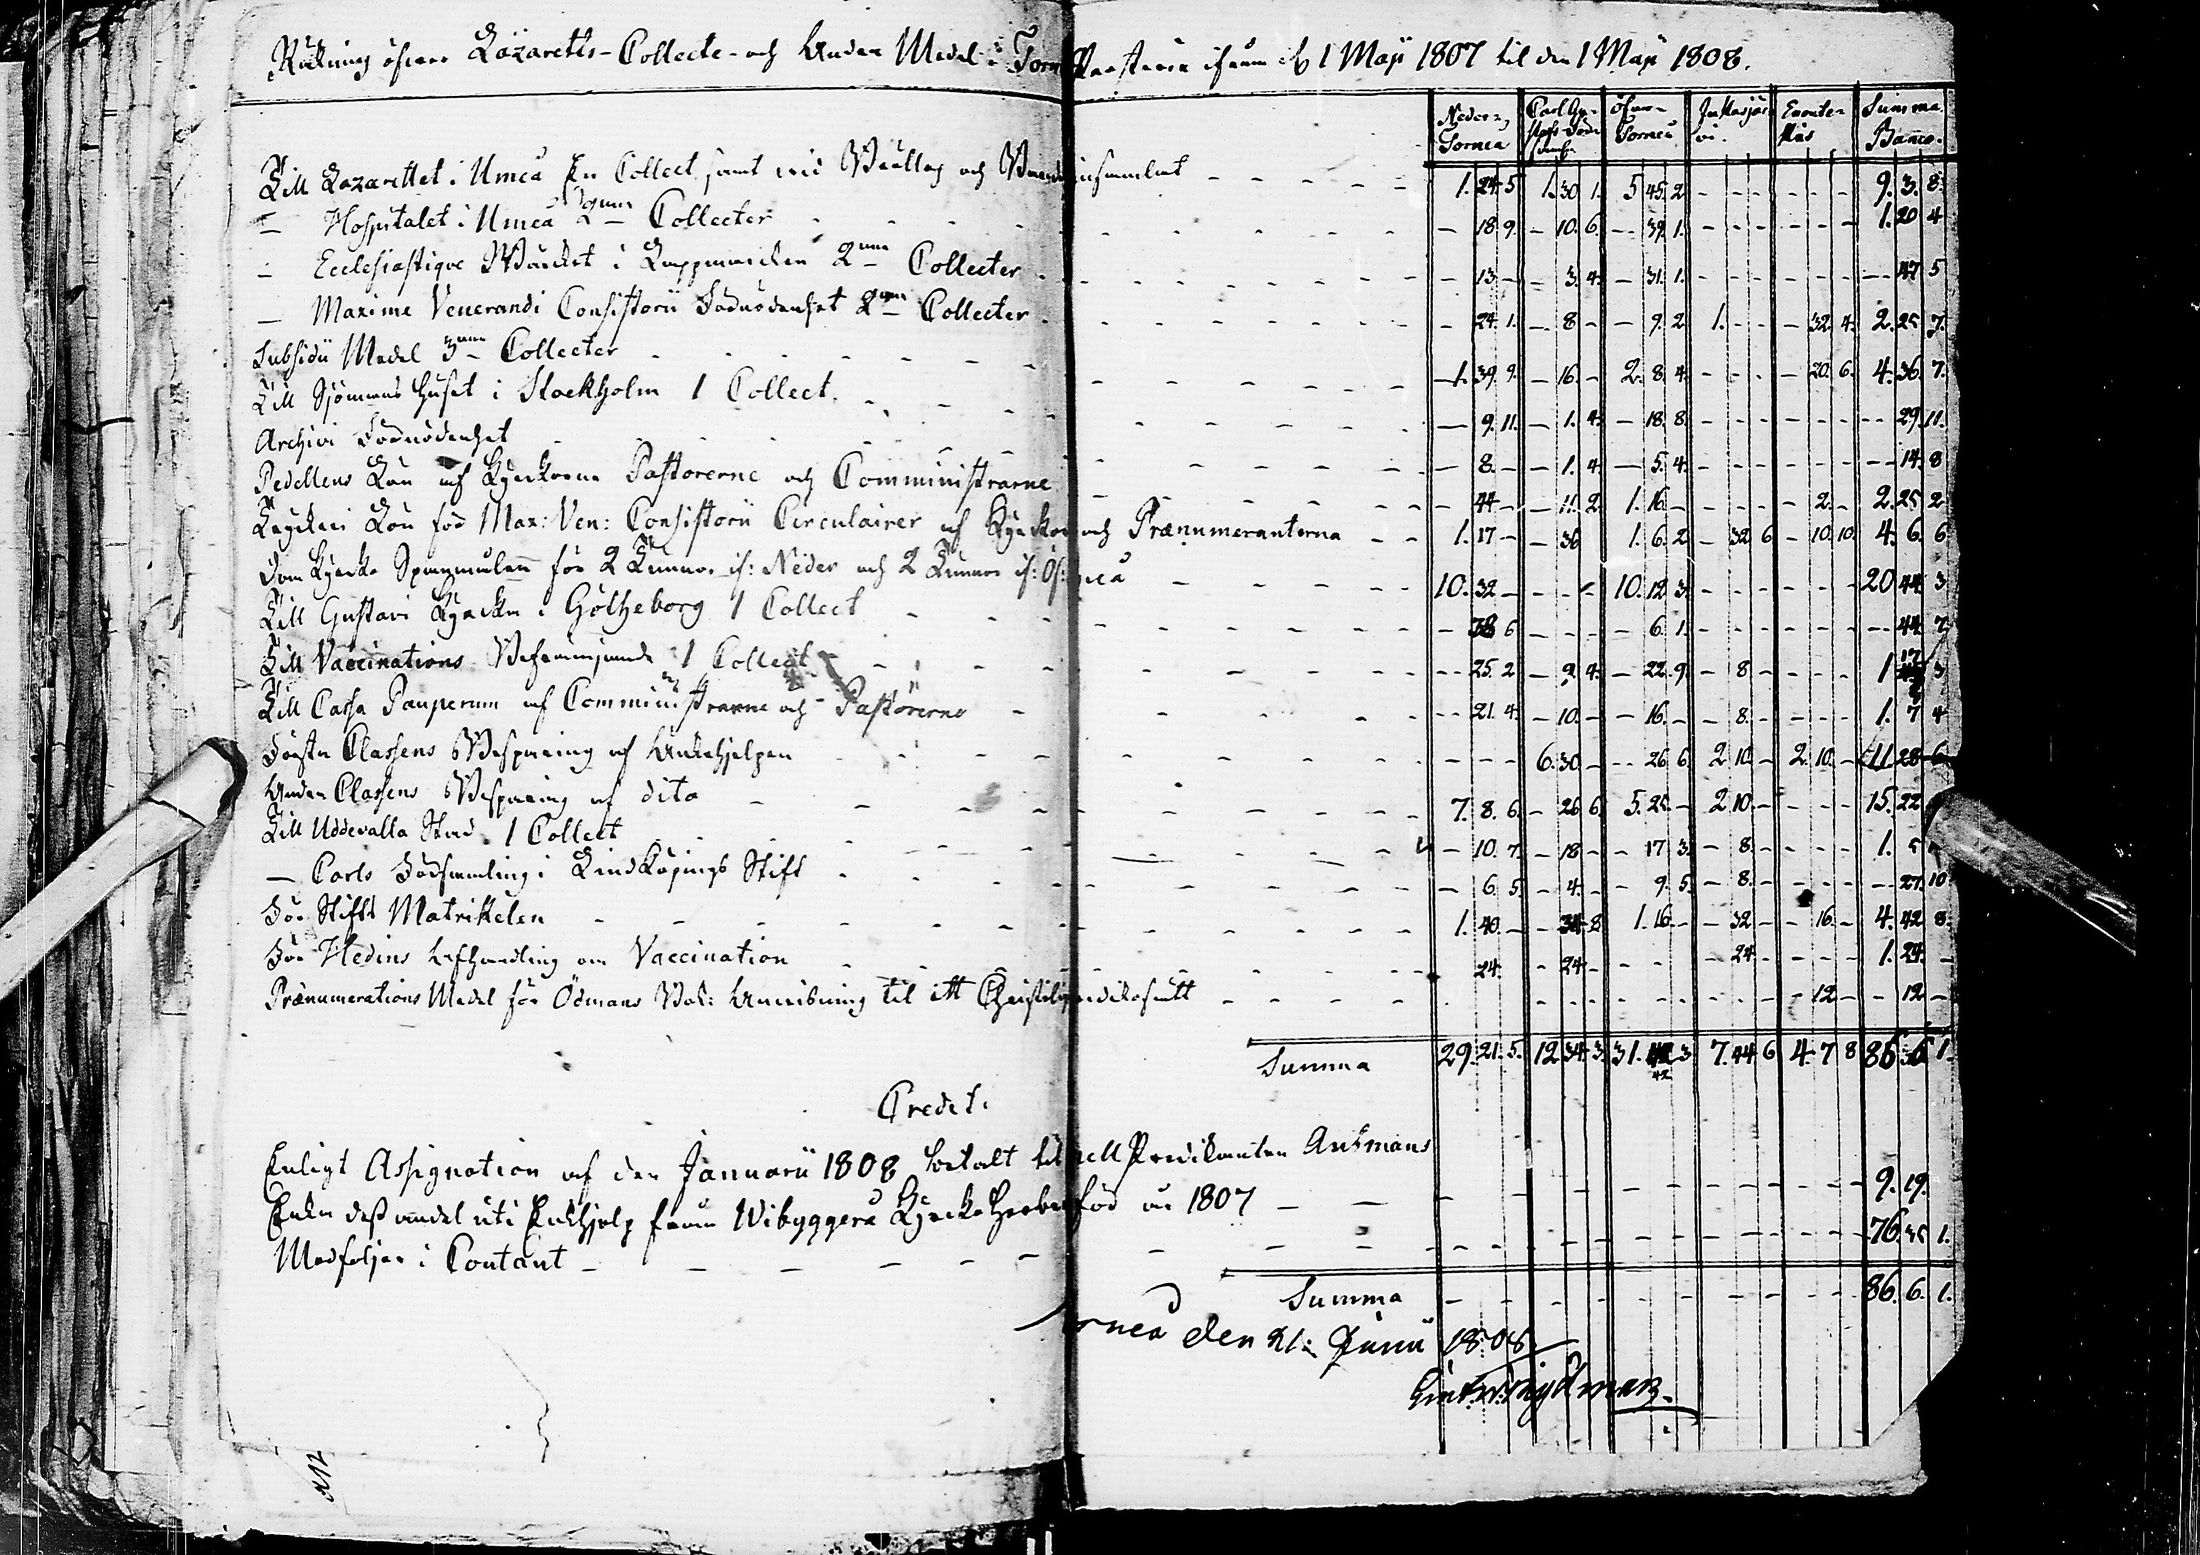 Räkning öfver Lazaretts-Collecte- och Andra Medel i Torneå Prosteri ifrån d. 1 Maji 1807 til den 1 Maji 1808.
Neder- Torneå Carl Gustafs Församl. Öfver- Torneå Jukkasjärvi. Enonte- kis Summa Banco.
Till Lazarettet i Umeå En Collect, samt vid Bröllop och Barndop insamlat - - 1. 24 5 1. 30 1. 5 45. 2 - - - - - - 9. 3. 8.
— Hospitalet i Umeå 2:ne Collecter - - — 18. 9. — 10. 6. — 39. 1. - - - - - - 1. 20 4
— Ecclesiastique Wärcket i Lappmarcken 2:ne Collecter - - — 13. - — 3. 4. — 31. 1. - - - - - - — 47 5
— Maxime Venerandi Consistorii Förnödenhet 2:ne Collecter - - — 24. 1. — 8 - — 9. 2 1. - - — 32. 4. 2. 25 7.
Subsidii Medel 3:ne Collecter - - 1. 39. 9. — 16. - 2. 8. 4. - - - — 20. 6. 4. 36. 7.
Till Sjömans Huset i Stockholm 1 Collect. - - — 9. 11. — 1. 4. — 18. 8. - - - - - - — 29. 11.
Archivi Förnödenhet - - — 8. - — 1. 4. — 5. 4. - - - - - - — 14. 8
Pedellens Lön af Kyrkorna Pastorerne och Comministrarne - - — 44 - — 11. 2. 1. 16. - - - - — 2. - 2. 25 2
Tryckeri Lön för Max: Ven: Consistorii Circulairer af Kyrkor och Prænumeranterna - - 1. 17 - — 36 1. 6. 2. — 32 6 — 10. 10. 4. 6. 6
Dom Kyrko Spannmålen för 2 Tunnor if: Neder och 2 Tunnor if: Öf: Torneå - - 10. 32 - - - - 10. 12 3. - - - - - - 20 44 3
Till Gustavi Kyrkan i Götheborg 1 Collect - - — 38 6 - - - — 6. 1. - - - - - - — 44. 7.
Till Vaccinations Befrämjande 1 Collect - - — 25. 2 — 9. 4. — 22. 9. — 8 - - - - 1 17 3
Till Cassa Pauperum af Comministrarne och Pastorerne - - — 21. 4. — 10. - — 16. - — 8. - - - - 1. 7 4
Första Classens Besparing af Enkehjelpen - - - - - 6. 30 - — 26 6. 2 10. - 2. 10. - 11 28 6
Andra Classens Besparing af dito - - 7. 8. 6. — 26 6. 5. 25. - 2 10. - - - - 15. 22
Till Uddevalla Stad. 1 Collect - - — 10. 7. — 18 - — 17 3. — 8. - - - - 1. 5
— Carls Församling i Lindköpings Stift - - — 6. 5. — 4. - — 9. 5. — 8. - - - - — 27. 10
För Stifts Matrikelen - - 1. 40. - — 34 8 1. 16. - — 32 - — 16. - 4. 42 8.
För Hedins Afhandling om Vaccination - - 24. — 24. - - - - — 24. - - - - 1. 24. -
Prænumerations Medel för Ödmans Anvisning til ett Christeligt - - — 12 - — 12 -
Summa 29. 21. 5. 12 34. 3. 31. 42 3. 7. 44 6 4. 7 8 86. 6 1.
Credit.
Enligt Assignation af den Januarii 1808 betalt til Capell Predikanten Antmans
Enka dess andel uti Enkhjelp från Wibyggerå Kyrkoherbe för år 1807 - - 9. 19.
Medföljer i Contant - - 76. 35 1.
Summa 86. 6. 1.
Torneå den 21: Junii 1808.